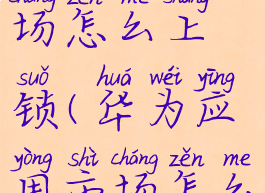 chǎng zěn me shàng
场怎么上
suǒ huá wéi yīng
锁(华为应
yòng shì chǎng zěn me
用市场怎么